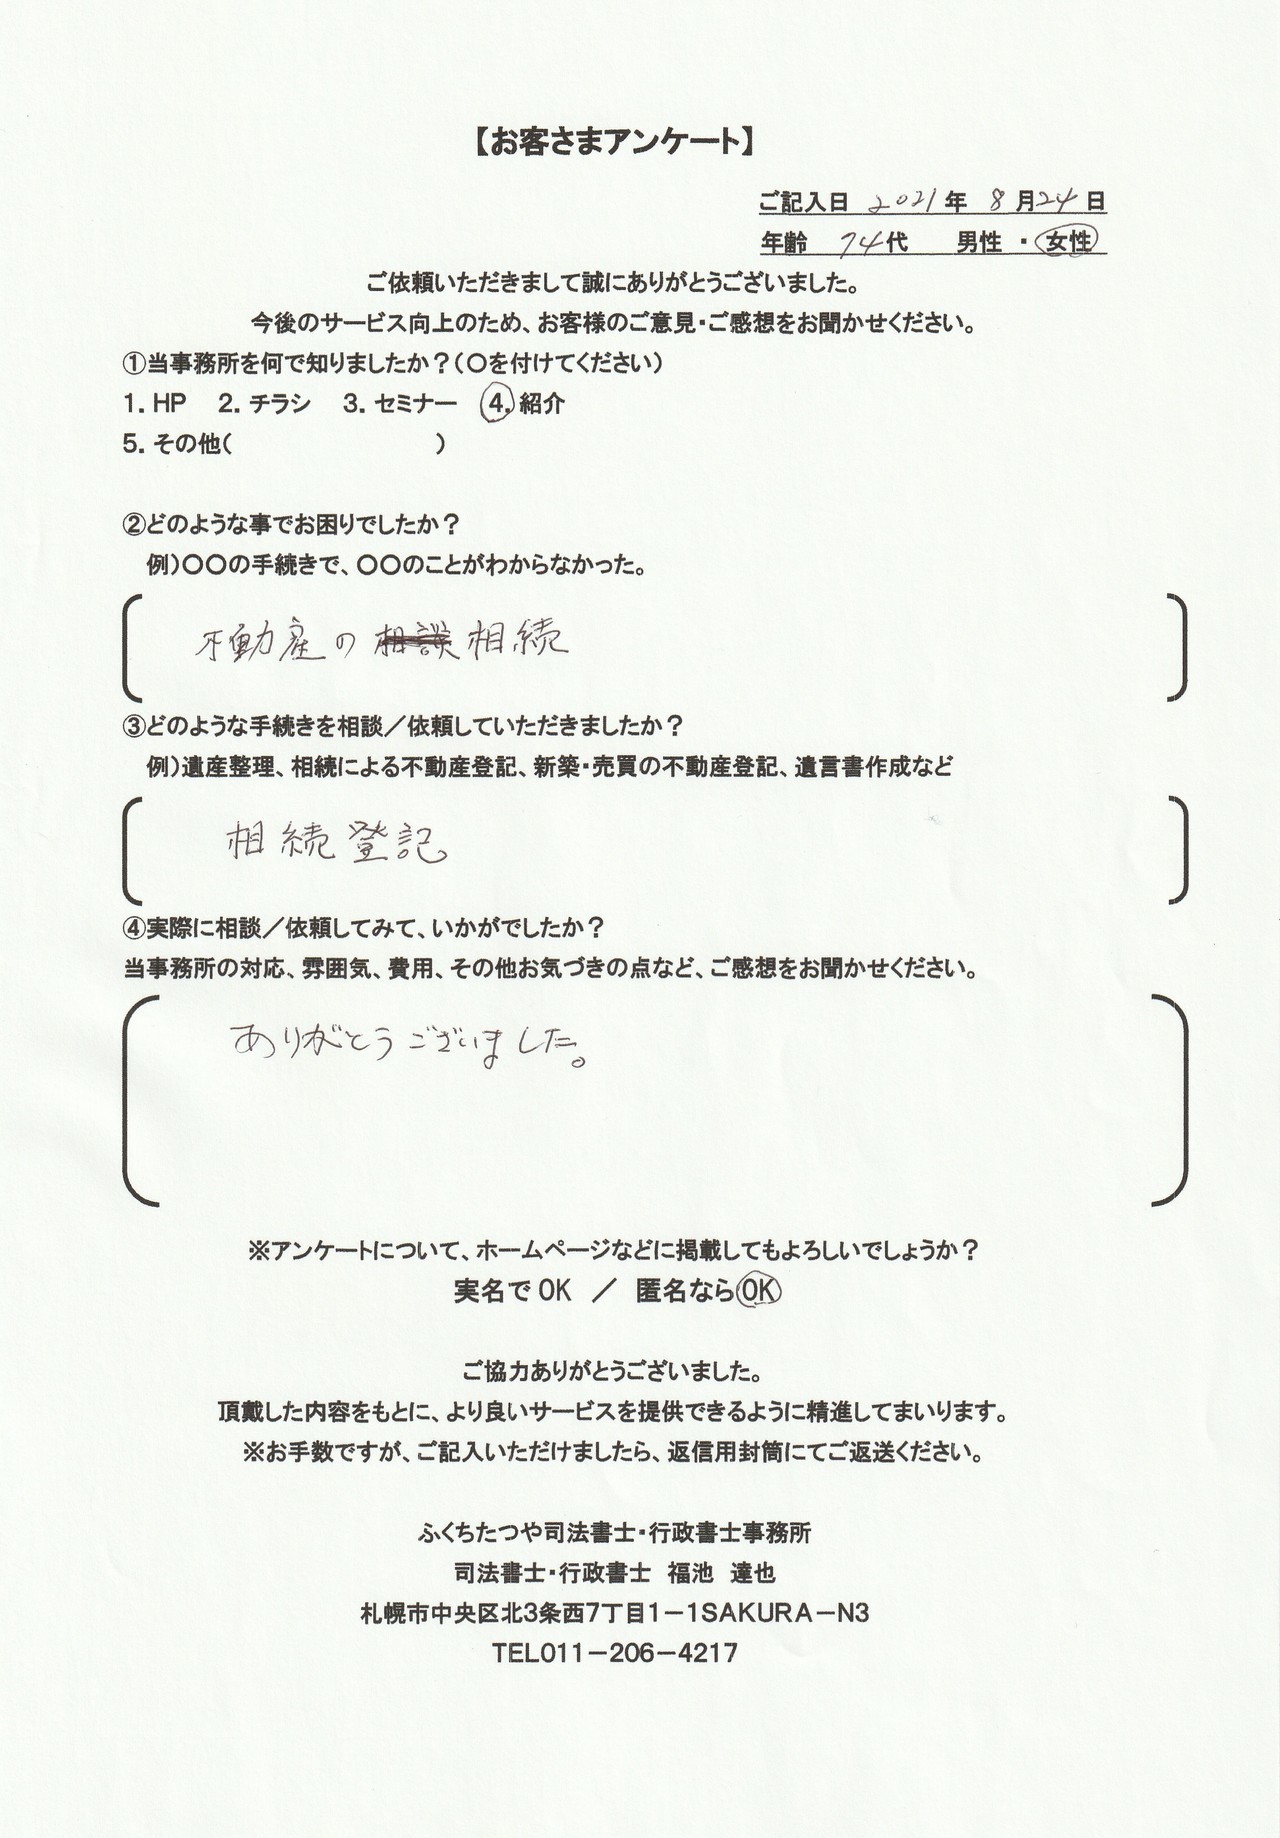 【お客さまアンケート】
ご記入日 2021年 8月24日
年齢 74代 男性 ・ 女性
ご依頼いただきまして誠にありがとうございました。
今後のサービス向上のため、お客様のご意見・ご感想をお聞かせください。
①当事務所を何で知りましたか？（〇を付けてください）
1. HP 2. チラシ 3. セミナー 4. 紹介
5. その他（ ）
②どのような事でお困りでしたか？
例）〇〇の手続きで、〇〇のことがわからなかった。
不動産の 相談 相続
③どのような手続きを相談／依頼していただきましたか？
例）遺産整理、相続による不動産登記、新築・売買の不動産登記、遺言書作成など
相続登記
④実際に相談／依頼してみて、いかがでしたか？
当事務所の対応、雰囲気、費用、その他お気づきの点など、ご感想をお聞かせください。
ありがとうございました。
※アンケートについて、ホームページなどに掲載してもよろしいでしょうか？
実名でOK ／ 匿名ならOK
ご協力ありがとうございました。
頂戴した内容をもとに、より良いサービスを提供できるように精進してまいります。
※お手数ですが、ご記入いただけましたら、返信用封筒にてご返送ください。
ふくちたつや司法書士・行政書士事務所
司法書士・行政書士 福池 達也
札幌市中央区北3条西7丁目1－1SAKURA－N3
TEL011－206－4217